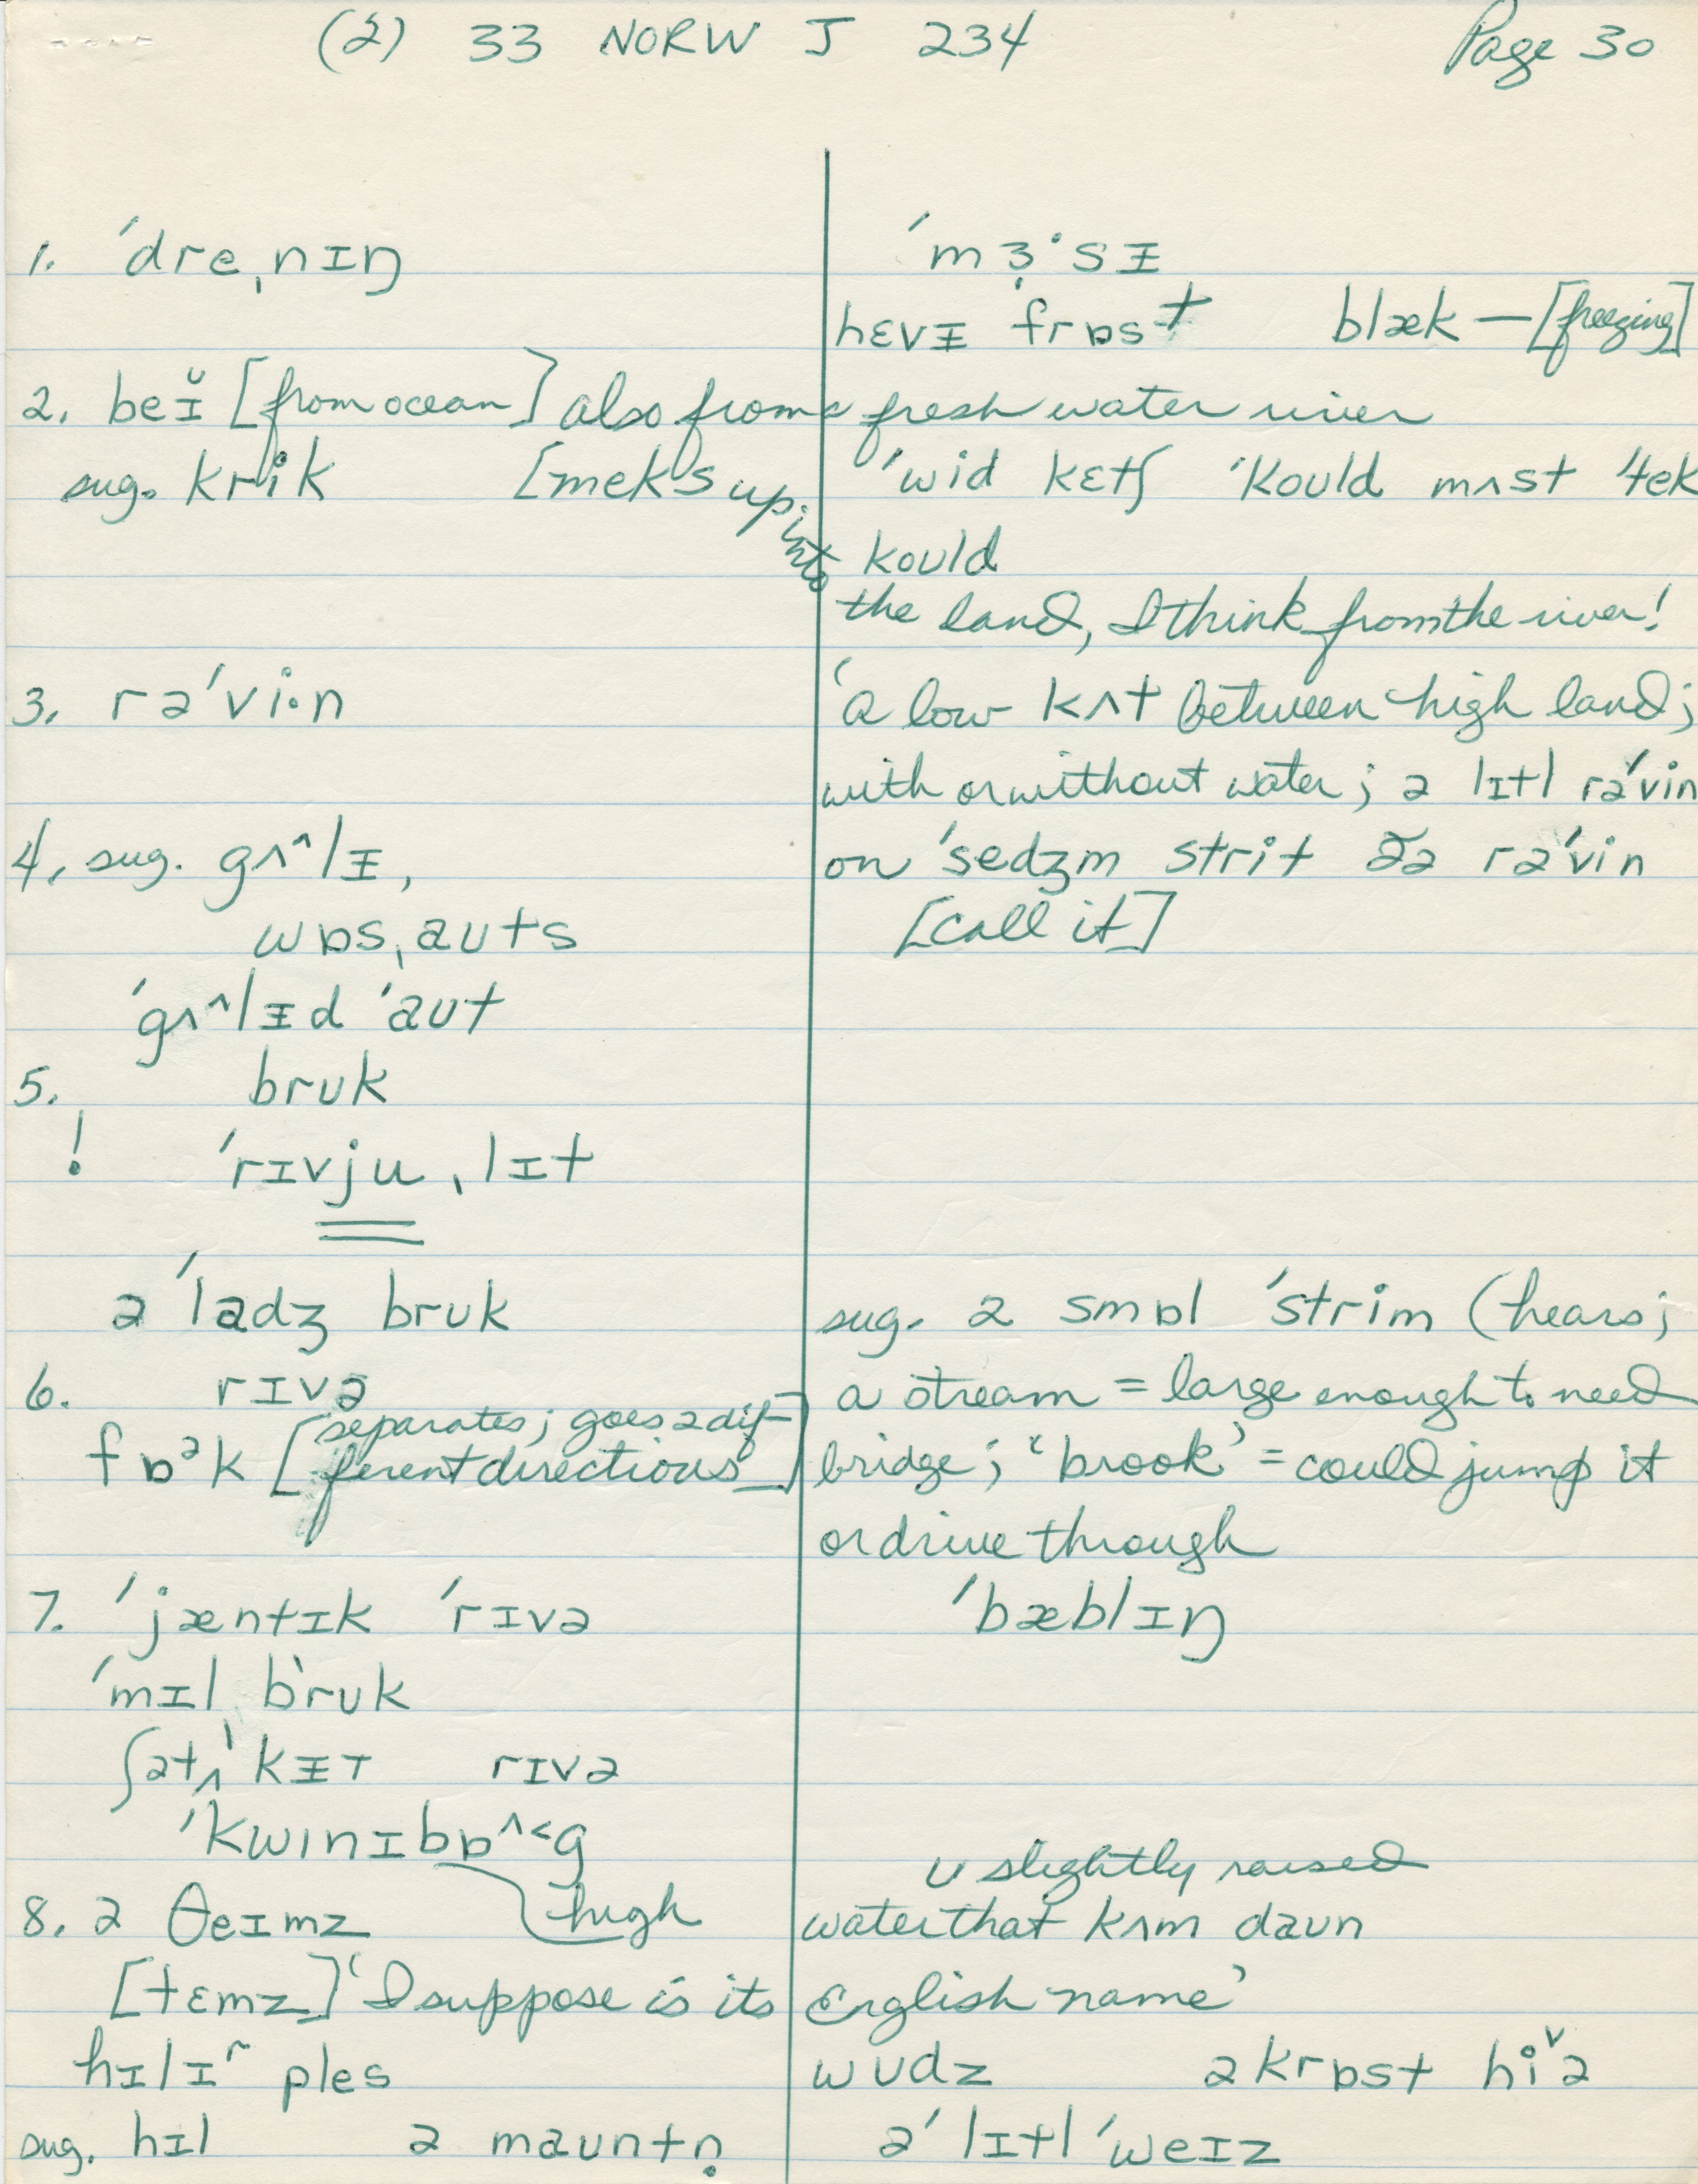 (2) 33 NORW J 234 Page 30
1. ˈdreˌnɪŋ ˈmɜ̣·sᵻ
hɛvᵻ frɒst blæk — [freezing]
2. beɪ̆ [from ocean] also from a fresh water river
sug. krik [meks up into ˈwid kɛtʃ ˈkould mʌst ˈtek
kould
the land, I think from the river!
3. rəˈvi·n ‘a low kʌt between high land;
with or without water; ə lɪtl rəˈvin
4. sug. gʌ^lᵻ, on ˈsedʒm strit ðə rəˈvin
wɒsˌauts [call it]
ˈgʌ^lᵻd ˈaut
5. bruk
! ˈrɪvjuˌlɪt
ə ˈladʒ bruk sug. ə smɒl ˈstrim (hears;
6. rɪvə a stream = large enough to need
fɒᵊk [separates; goes 2 different directions] bridge; ‘brook’ = could jump it
or drive through
7. ˈjæntɪk ˈrɪvə ˈbæblɪŋ
ˈmɪl bruk
ʃətʌˈkᵻt rɪvə
ˈkwɪnɪbɒ^<g
ʊ slightly raised
8. ə θeɪmz high water that kʌm daun
[tɛmz] ‘I suppose is its English name’
hɪlɪ ples wʊdz əkrɒst hiˇə
sug. hɪl ə mauntṇ əˈ lɪtl ˈweɪz